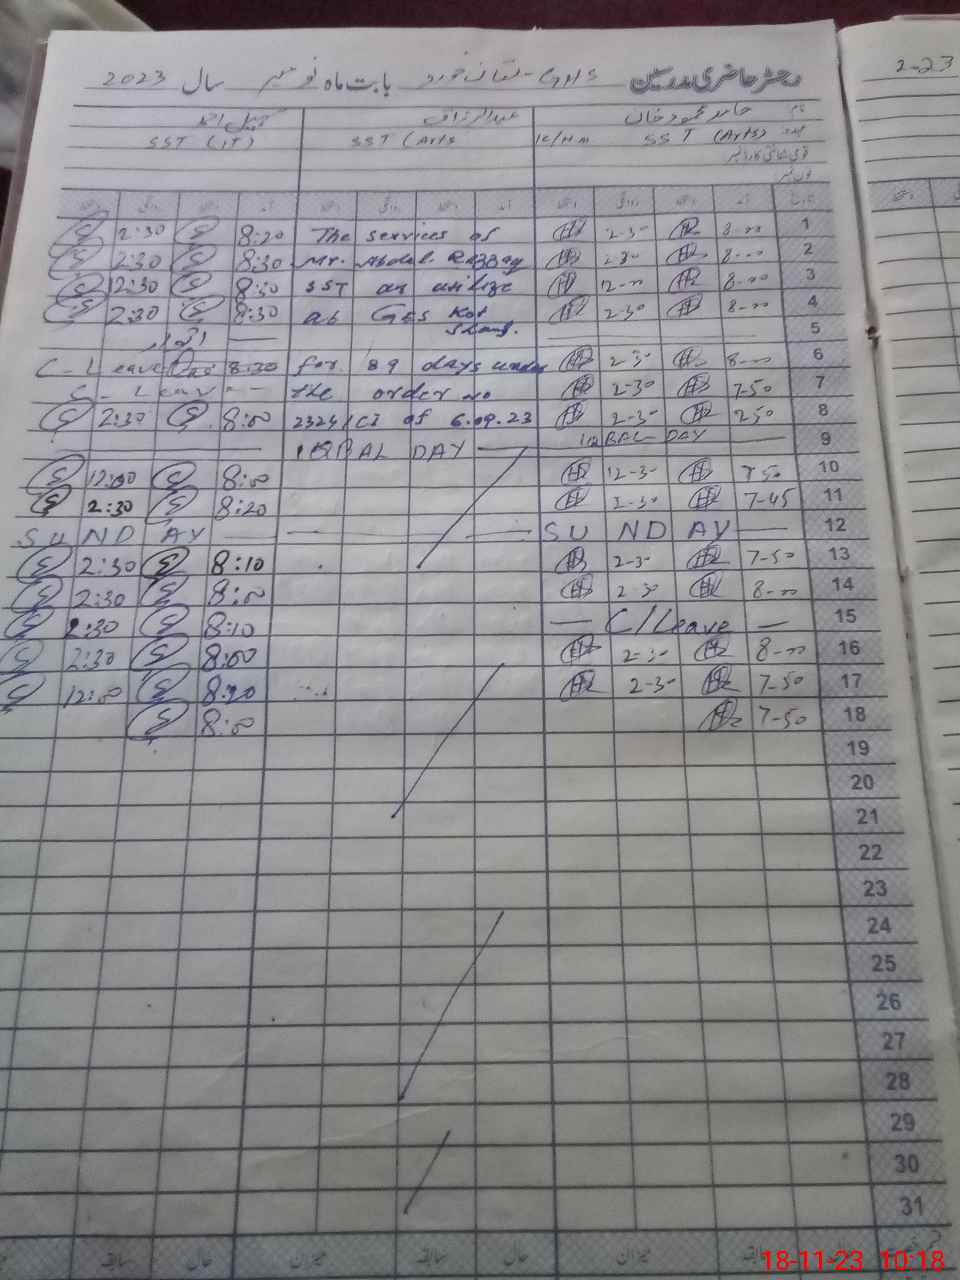 رجسٹر حاضری مدرسین GHS بابت ماہ نومبر سال 2023
2-23
نام حامد محمود خان عبدالرزاق سہیل احمد
عہدہ SST (Arts) SST (Arts SST (IT)
قومی شناختی کارڈ نمبر
فون نمبر
تاریخ آمد دستخط روانگی دستخط آمد دستخط روانگی دستخط آمد دستخط روانگی دستخط
1 8-00 2-30 The services of 8:20 2:30
2 8-00 2-30 Mr. Abdul Razzaq 8:30 2:30
3 8-00 12-00 SST are utilize 8:30 12:30
4 8-00 2-30 at GHS Kot 8:30 2:30
5 اتوار
6 8-00 2-30 for 89 days under 8:30 C-Leave
7 7-50 2-30 the order no Leave
8 7-50 2-30 2324/CI of 6.09.23 8:00 2:30
9 IQBAL DAY IQBAL DAY
10 7-50 12-30 8:00 12:00
11 7-45 2-30 8:20 2:30
12 SUNDAY SUNDAY
13 7-50 2-30 8:10 2:30
14 8-00 2-30 8:00 2:30
15 C/Leave 8:10 2:30
16 8-00 2-30 8:00 2:30
17 7-50 2-30 8:20 12:00
18 7-50 8:00
19
20
21
22
23
24
25
26
27
28
29
30
31
سابقہ میزان حال سابقہ میزان حال سابقہ
18-11-23 10:18